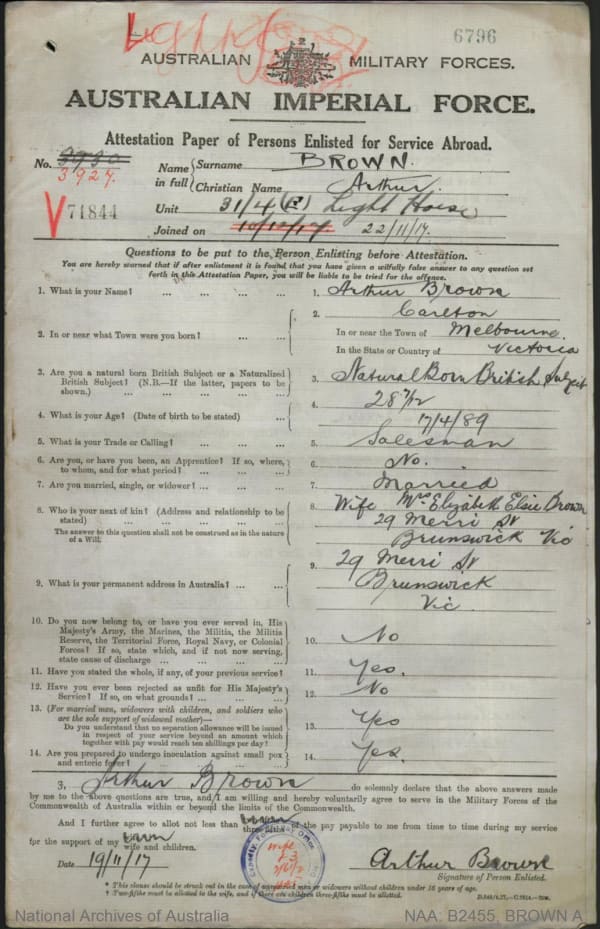 6796
AUSTRALIAN MILITARY FORCES.
AUSTRALIAN IMPERIAL FORCE.
Attestation Paper of Persons Enlisted for Service Abroad.
No. 3930 Name in full Surname BROWN.
3927. Christian Name Arthur.
V 71844 Unit 31/4 Light Horse
Joined on 10/12/17 22/11/17.
Questions to be put to the Person Enlisting before Attestation.
You are hereby warned that if after enlistment it is found that you have given a wilfully false answer to any question set
forth in this Attestation Paper, you will be liable to be tried for the offence.
1. What is your Name? ... ... ... ... 1. Arthur Brown
2. In or near what Town were you born? ... ... 2. Carlton
In or near the Town of Melbourne.
In the State or Country of Victoria
3. Are you a natural born British Subject or a Naturalized
British Subject? (N.B.—If the latter, papers to be
shown.) ... ... ... ... 3. Natural Born British Subject
4. What is your Age? (Date of birth to be stated) ... 4. 28 7/12
17/4/89
5. What is your Trade or Calling? ... ... ... 5. Salesman
6. Are you, or have you been, an Apprentice? If so, where,
to whom, and for what period? ... ... ... 6. No.
7. Are you married, single, or widower? ... ... 7. Married
8. Who is your next of kin? (Address and relationship to be
stated) ... ... ... ... ... 8. Wife Mrs Elizabeth Elsie Brown
29 Merri St
Brunswick Vic
The answer to this question shall not be construed as in the nature
of a Will.
9. What is your permanent address in Australia? ... ... 9. 29 Merri St
Brunswick
Vic.
10. Do you now belong to, or have you ever served in, His
Majesty's Army, the Marines, the Militia, the Militia
Reserve, the Territorial Force, Royal Navy, or Colonial
Forces? If so, state which, and if not now serving,
state cause of discharge ... ... ... ... 10. No
11. Have you stated the whole, if any, of your previous service? 11. Yes.
12. Have you ever been rejected as unfit for His Majesty's
Service? If so, on what grounds? ... ... ... 12. No
13. (For married men, widowers with children, and soldiers who
are the sole support of widowed mother)—
Do you understand that no separation allowance will be issued
in respect of your service beyond an amount which
together with pay would reach ten shillings per day? 13. Yes
14. Are you prepared to undergo inoculation against small pox
and enteric fever? ... ... ... ... 14. Yes.
I, Arthur Brown do solemnly declare that the above answers made
by me to the above questions are true, and I am willing and hereby voluntarily agree to serve in the Military Forces of the
Commonwealth of Australia within or beyond the limits of the Commonwealth.
And I further agree to allot not less than of the pay payable to me from time to time during my service
for the support of my wife and children.
Date 19/11/17 Arthur Brown
Signature of Person Enlisted.
wife
* This clause should be struck out in the case of unmarried men or widowers without children under 16 years of age.
† Two-fifths must be allotted to the wife, and if there are children three-fifths must be allotted.
National Archives of Australia NAA: B2455, BROWN A